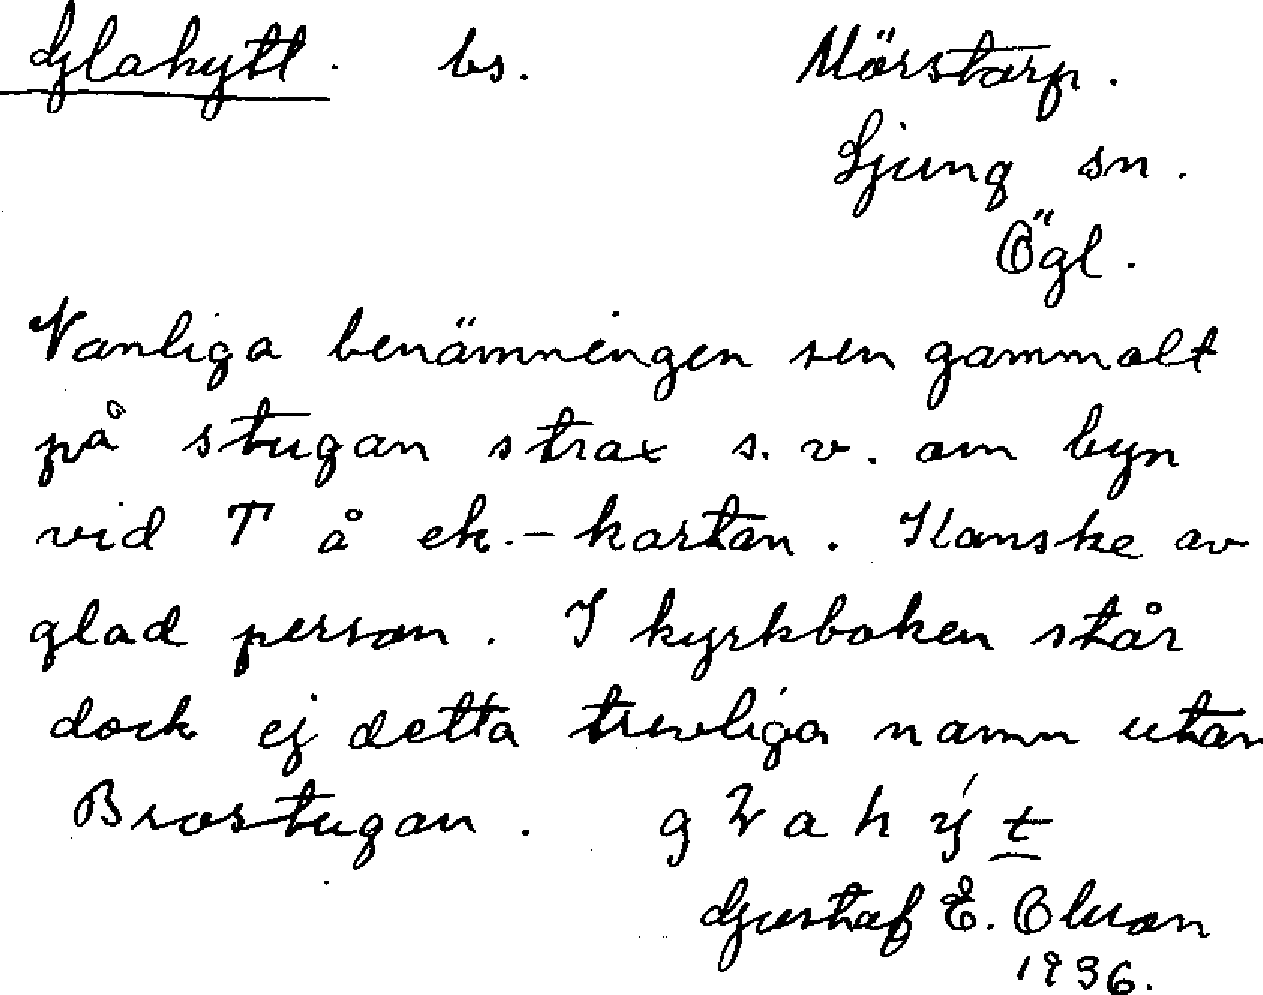 Glahytt. bs. Mörstorp.
Ljung sn.
Ögl.
Vanliga benämningen sen gammalt
på stugan strax s.v. om byn
vid T å ek.-kartan. Kanske av
glad person. I kyrkboken står
dock ej detta trevliga namn utan
Brostugan.
Gustaf E. Olsson
1936.